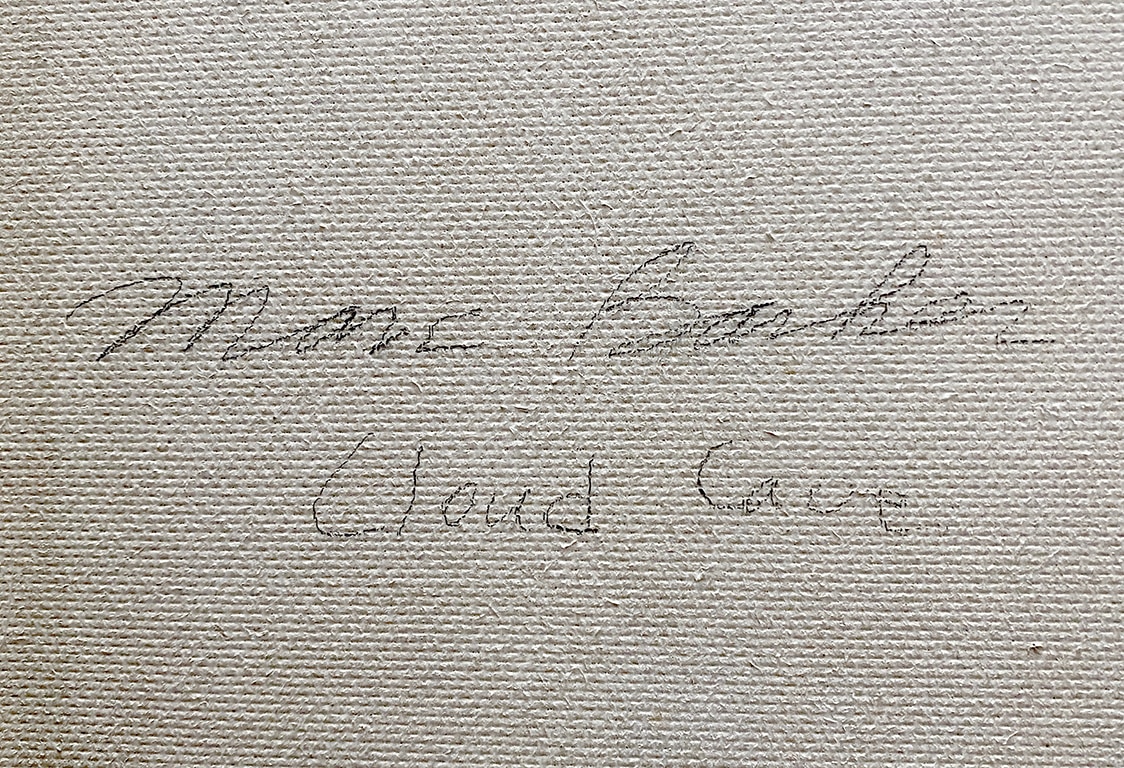 Marc Barker
Cloud Cave